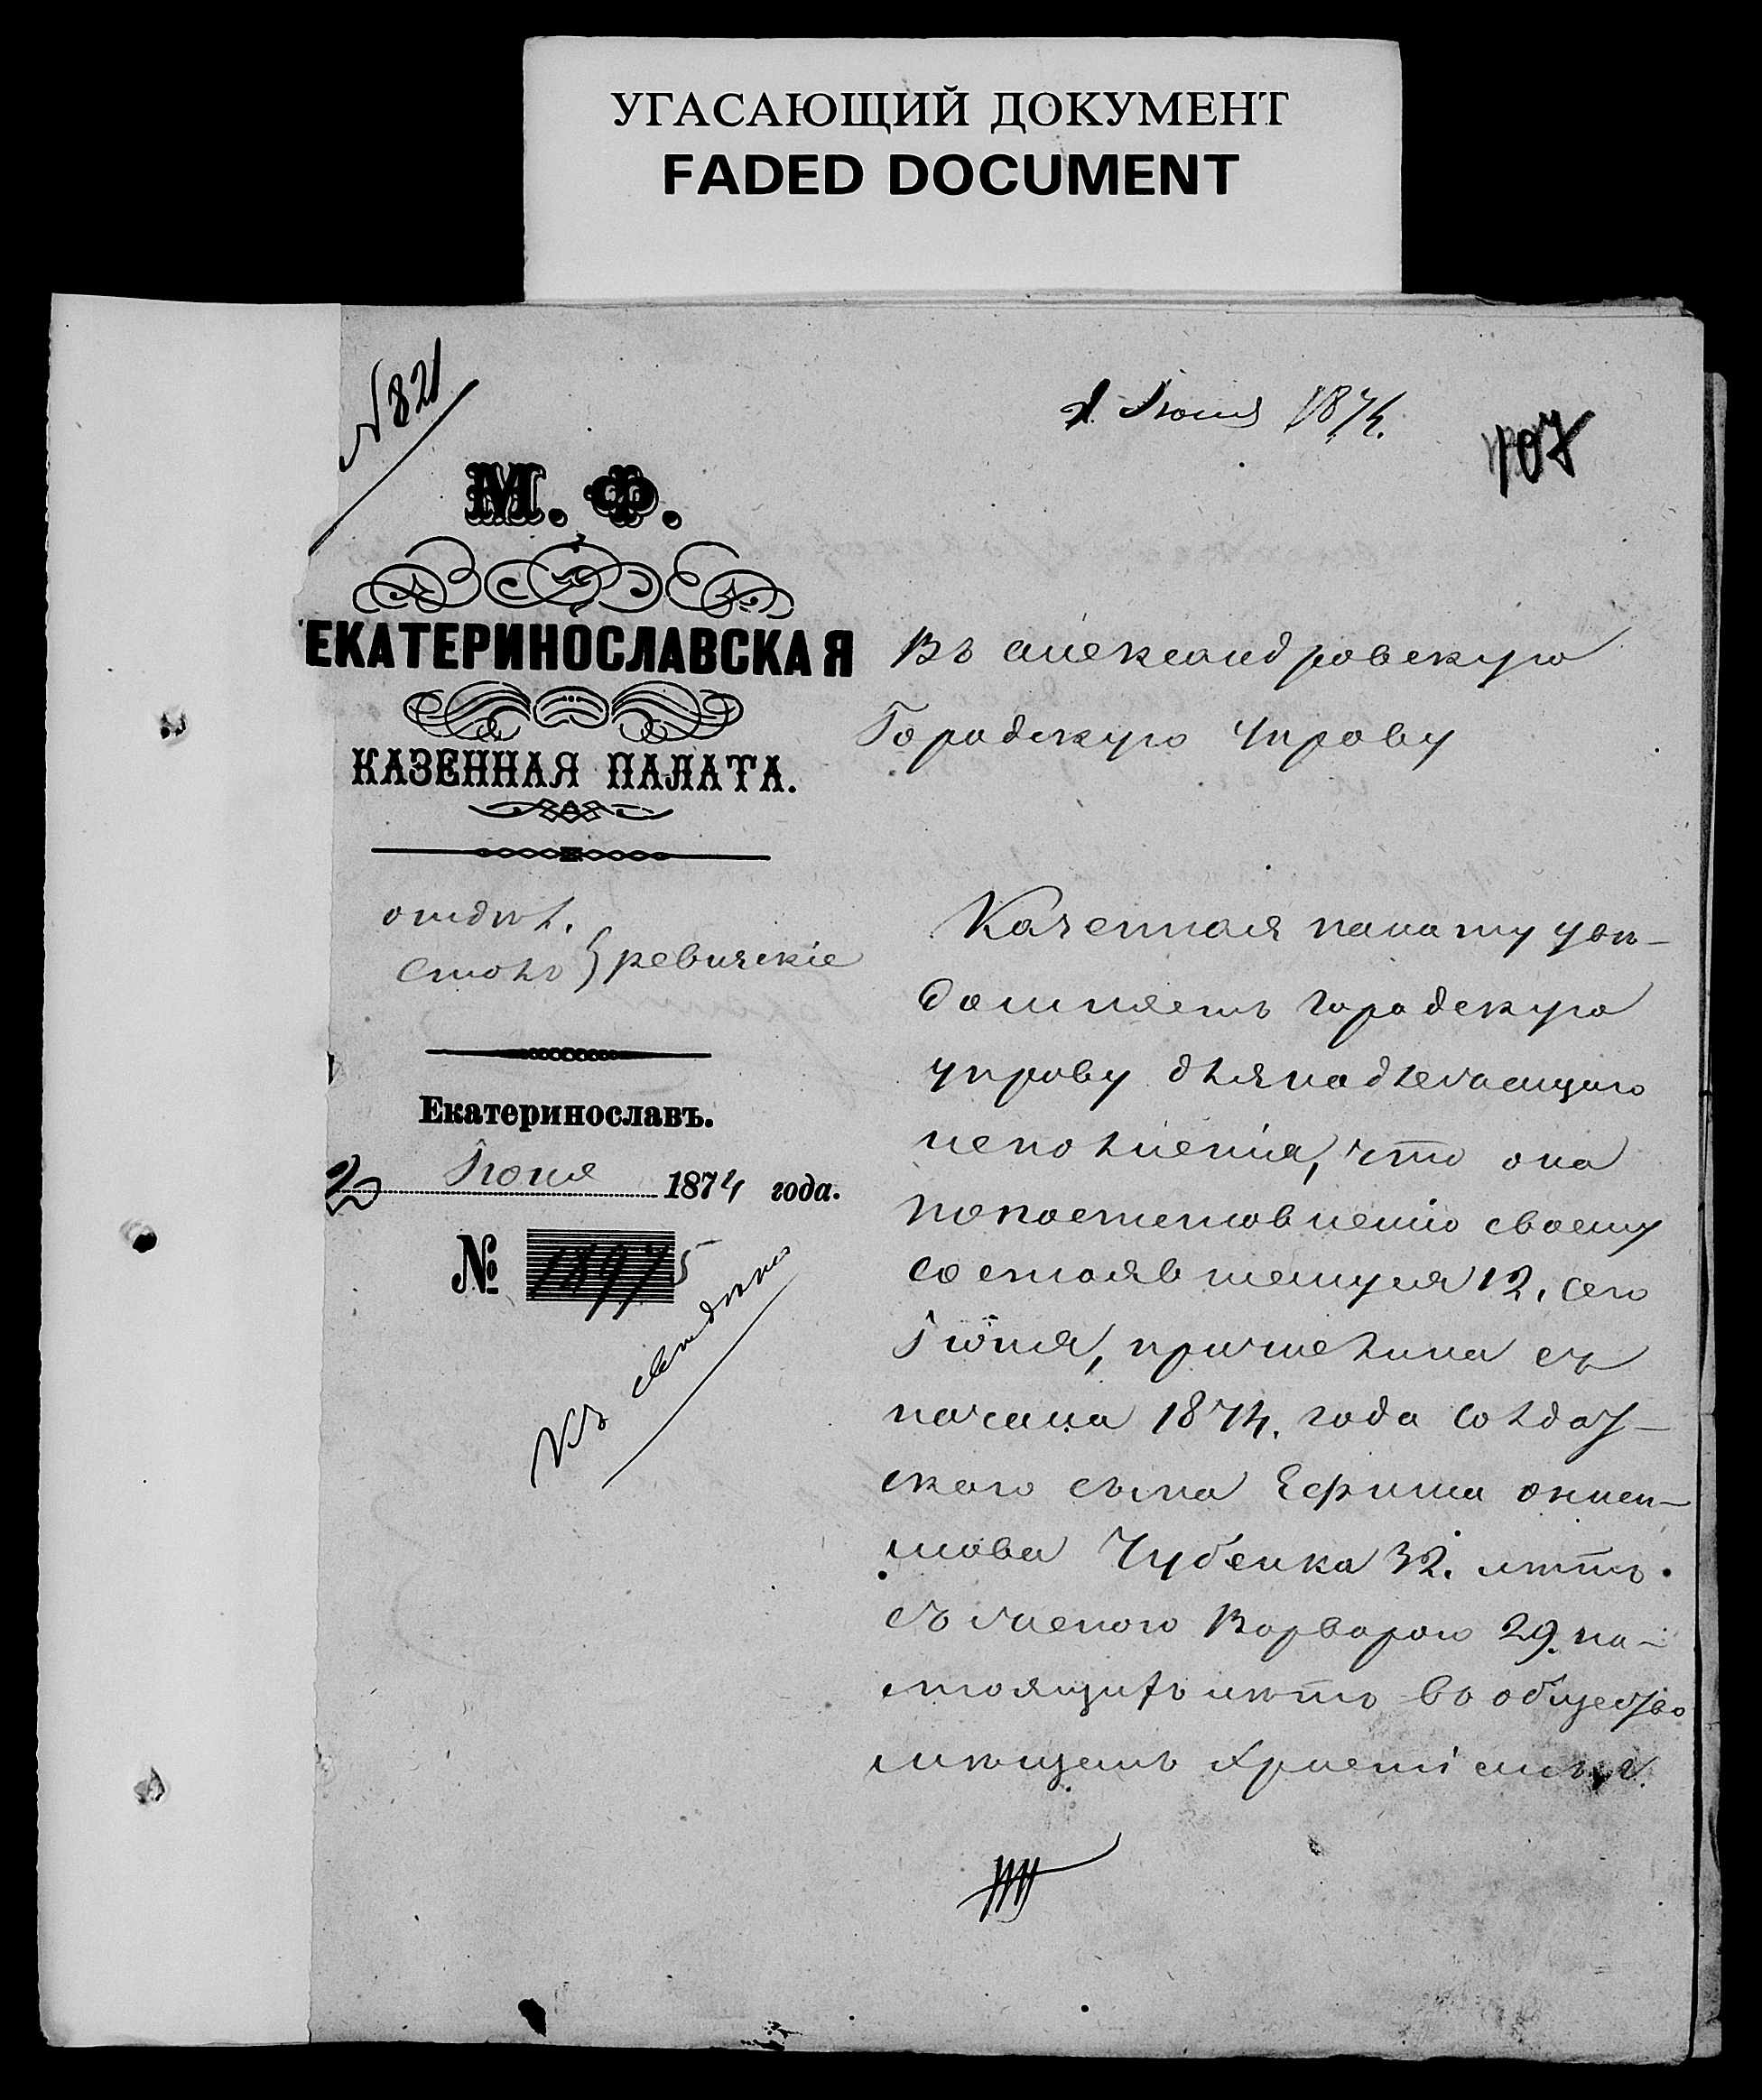 УГАСАЮЩИЙ ДОКУМЕНТ
FADED DOCUMENT
№ 821
Іюня 1874.
107
М. Ф.
ЕКАТЕРИНОСЛАВСКАЯ
КАЗЕННАЯ ПАЛАТА.
отдѣл.
столъ } ревизскіе
Екатеринославъ.
Іюня 1874 года.
№
Въ Александровскую
Городскую Управу
Казенная палата увѣ-
домляетъ городскую
управу для надлежащаго
исполненія, что она
по постановленію своему
состоявшемуся 12. сего
Іюня, причислила съ
начала 1874. года солдат-
скаго сына Ефима
Чубенка 32. лѣтъ
съ женою Варварою 29. на-
стоящихъ лѣтъ въ общество
мѣщанъ христіанъ